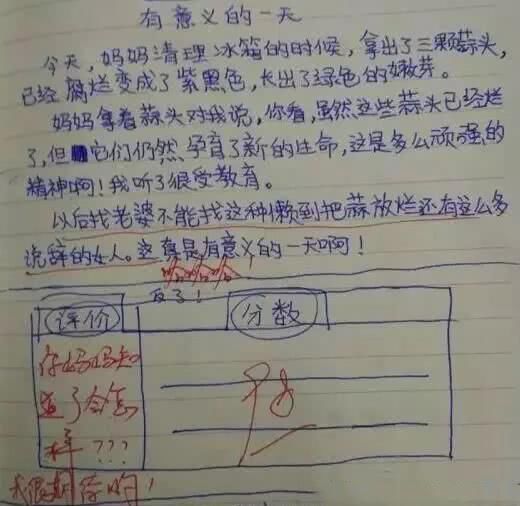 有意义的一天
今天，妈妈清理冰箱的时候，拿出了三颗蒜头，
已经腐烂变成了紫黑色，长出了绿色的嫩芽。
妈妈拿着蒜头对我说，你看，虽然这些蒜头已经烂
了，但它们仍然孕育了新的生命，这是多么顽强的
精神啊！我听了很受教育。
以后找老婆不能找这种懒到把蒜放烂还有这么多
说辞的女人。这真是有意义的一天啊！
哈哈哈
反了！
评价
分数
你妈妈知
道了会怎
样？？？
我很期待哟！